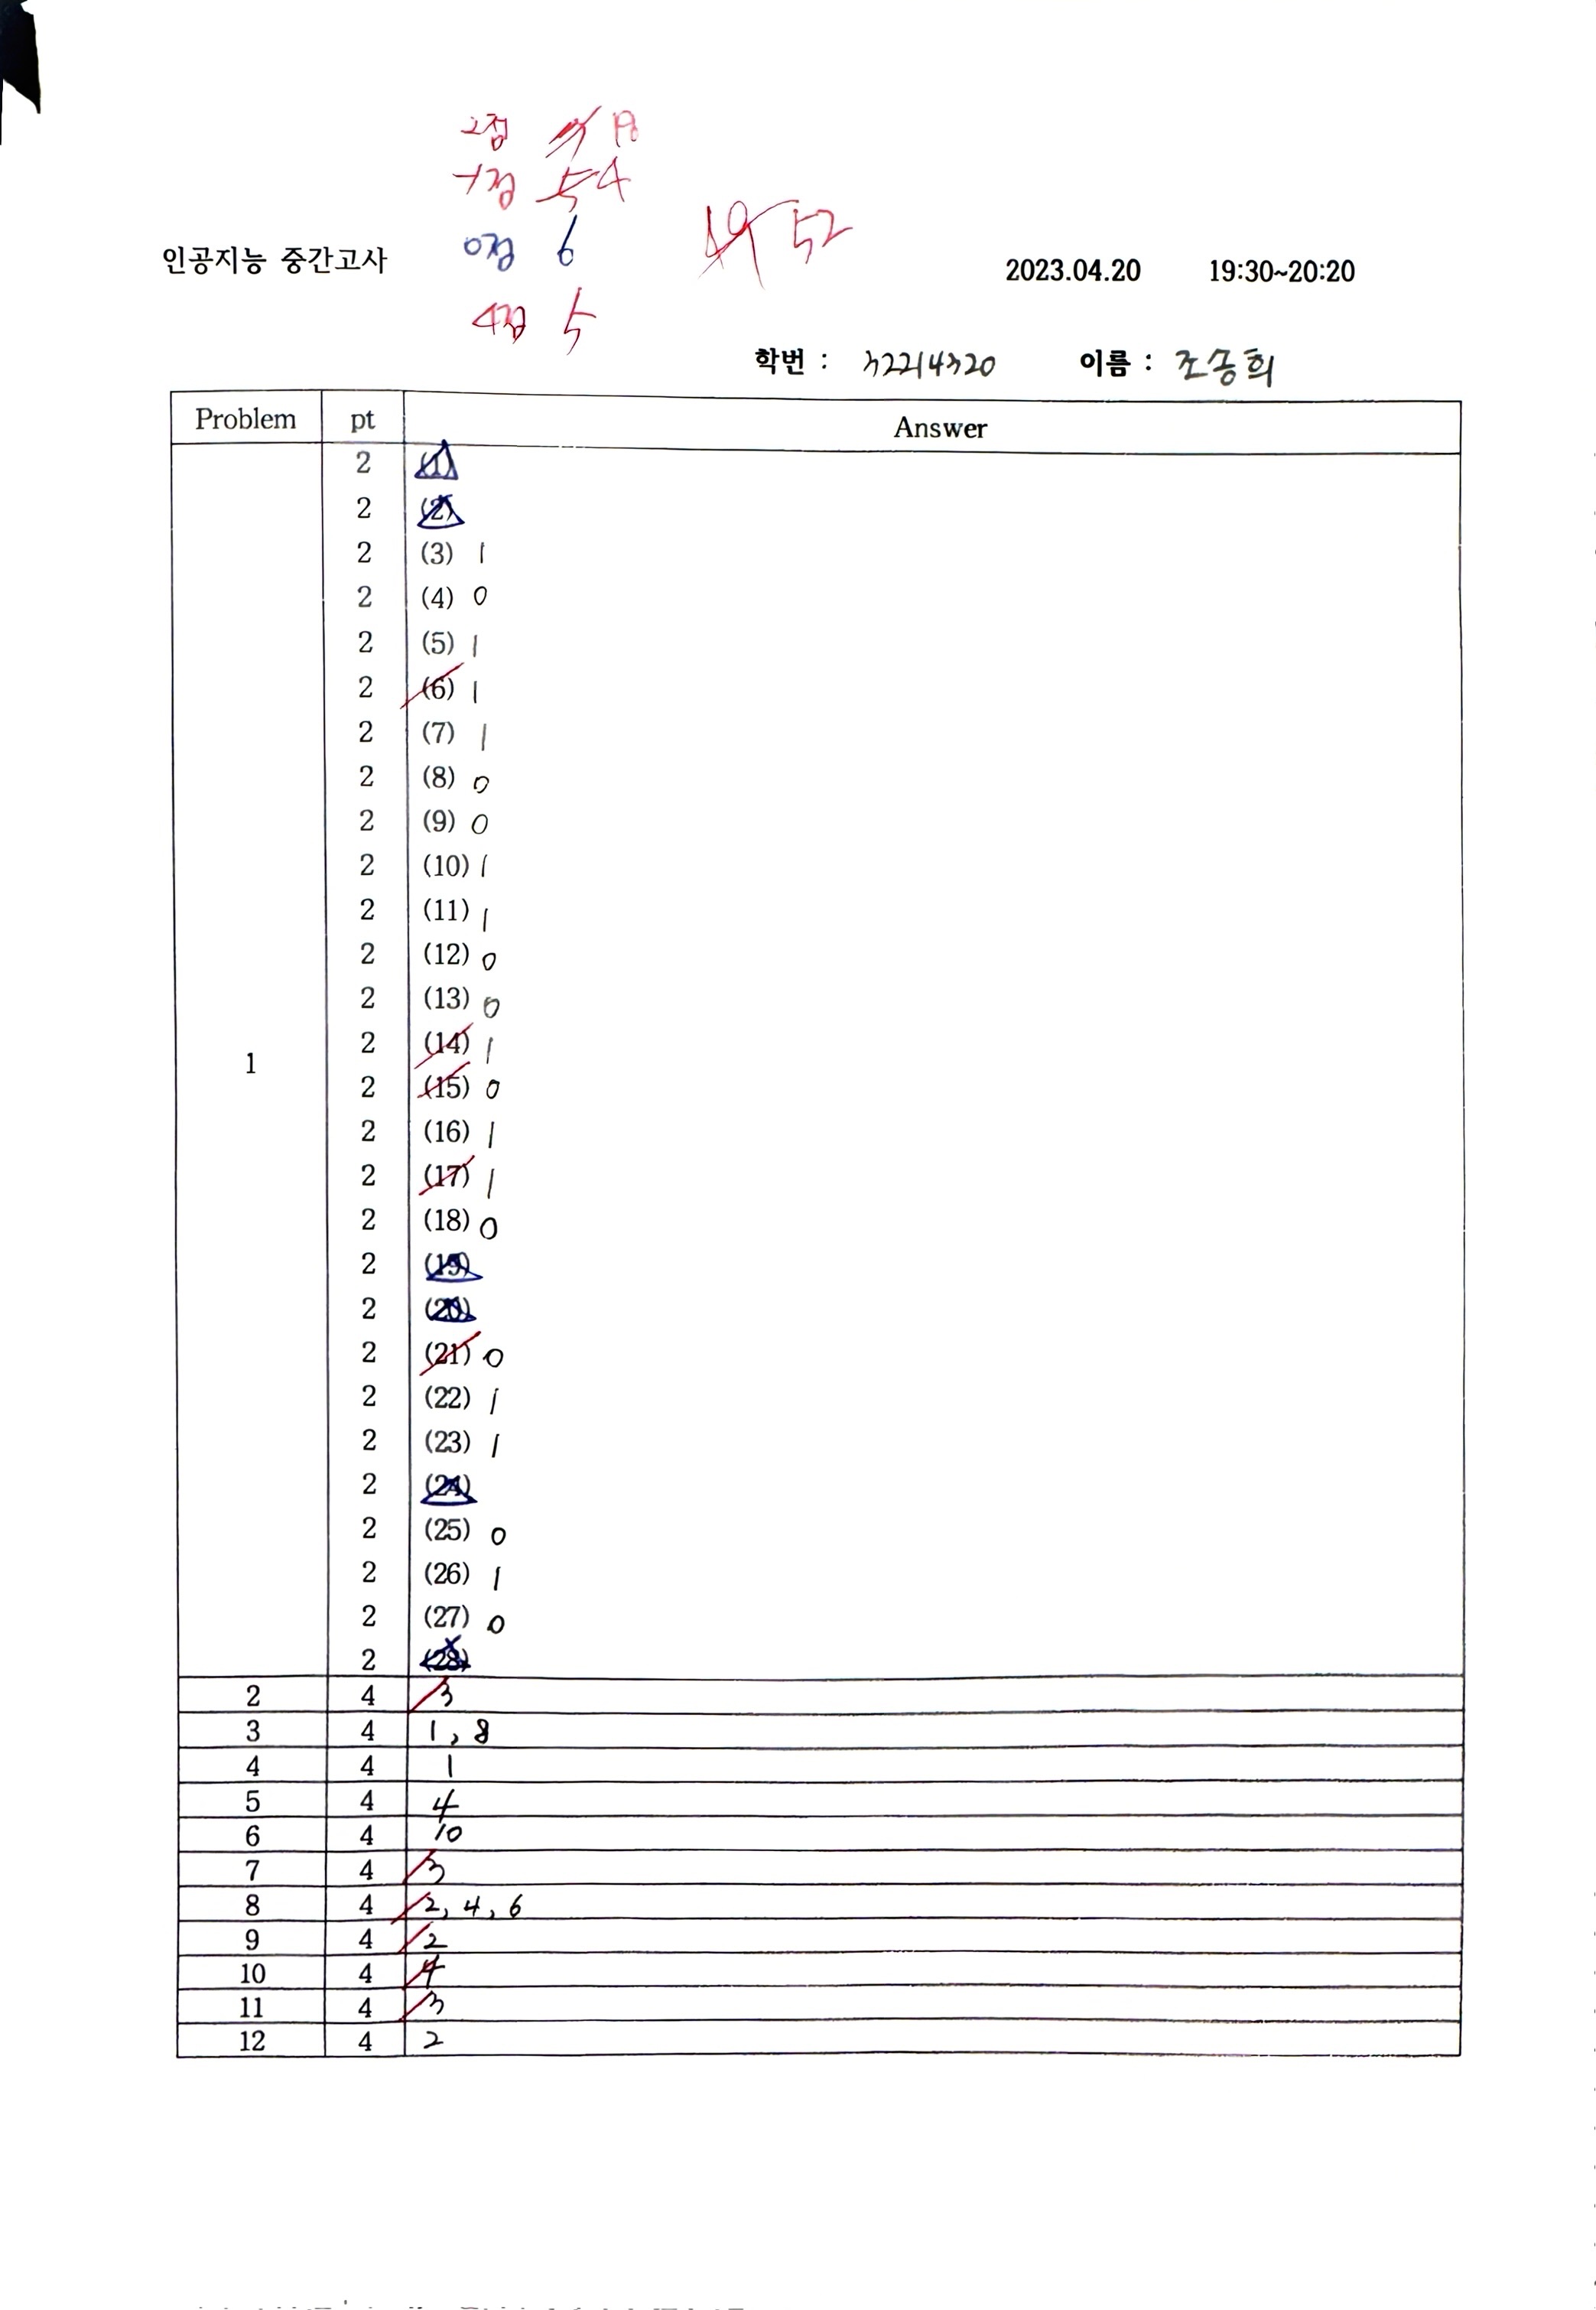 2점 18
-1점 5 4
인공지능 중간고사 0점 6 49 52 2023.04.20 19:30~20:20
4점 5
학번 : 32214320 이름 : 조송희
Problem pt Answer
1
2 (1)
2 (2)
2 (3) 1
2 (4) 0
2 (5) 1
2 (6) 1
2 (7) 1
2 (8) 0
2 (9) 0
2 (10) 1
2 (11) 1
2 (12) 0
2 (13) 0
2 (14) 1
2 (15) 0
2 (16) 1
2 (17) 1
2 (18) 0
2 (19)
2 (20)
2 (21) 0
2 (22) 1
2 (23) 1
2 (24)
2 (25) 0
2 (26) 1
2 (27) 0
2 (28)
2 4 3
3 4 1, 8
4 4 1
5 4 4
6 4 10
7 4 3
8 4 2, 4, 6
9 4 2
10 4 4
11 4 3
12 4 2